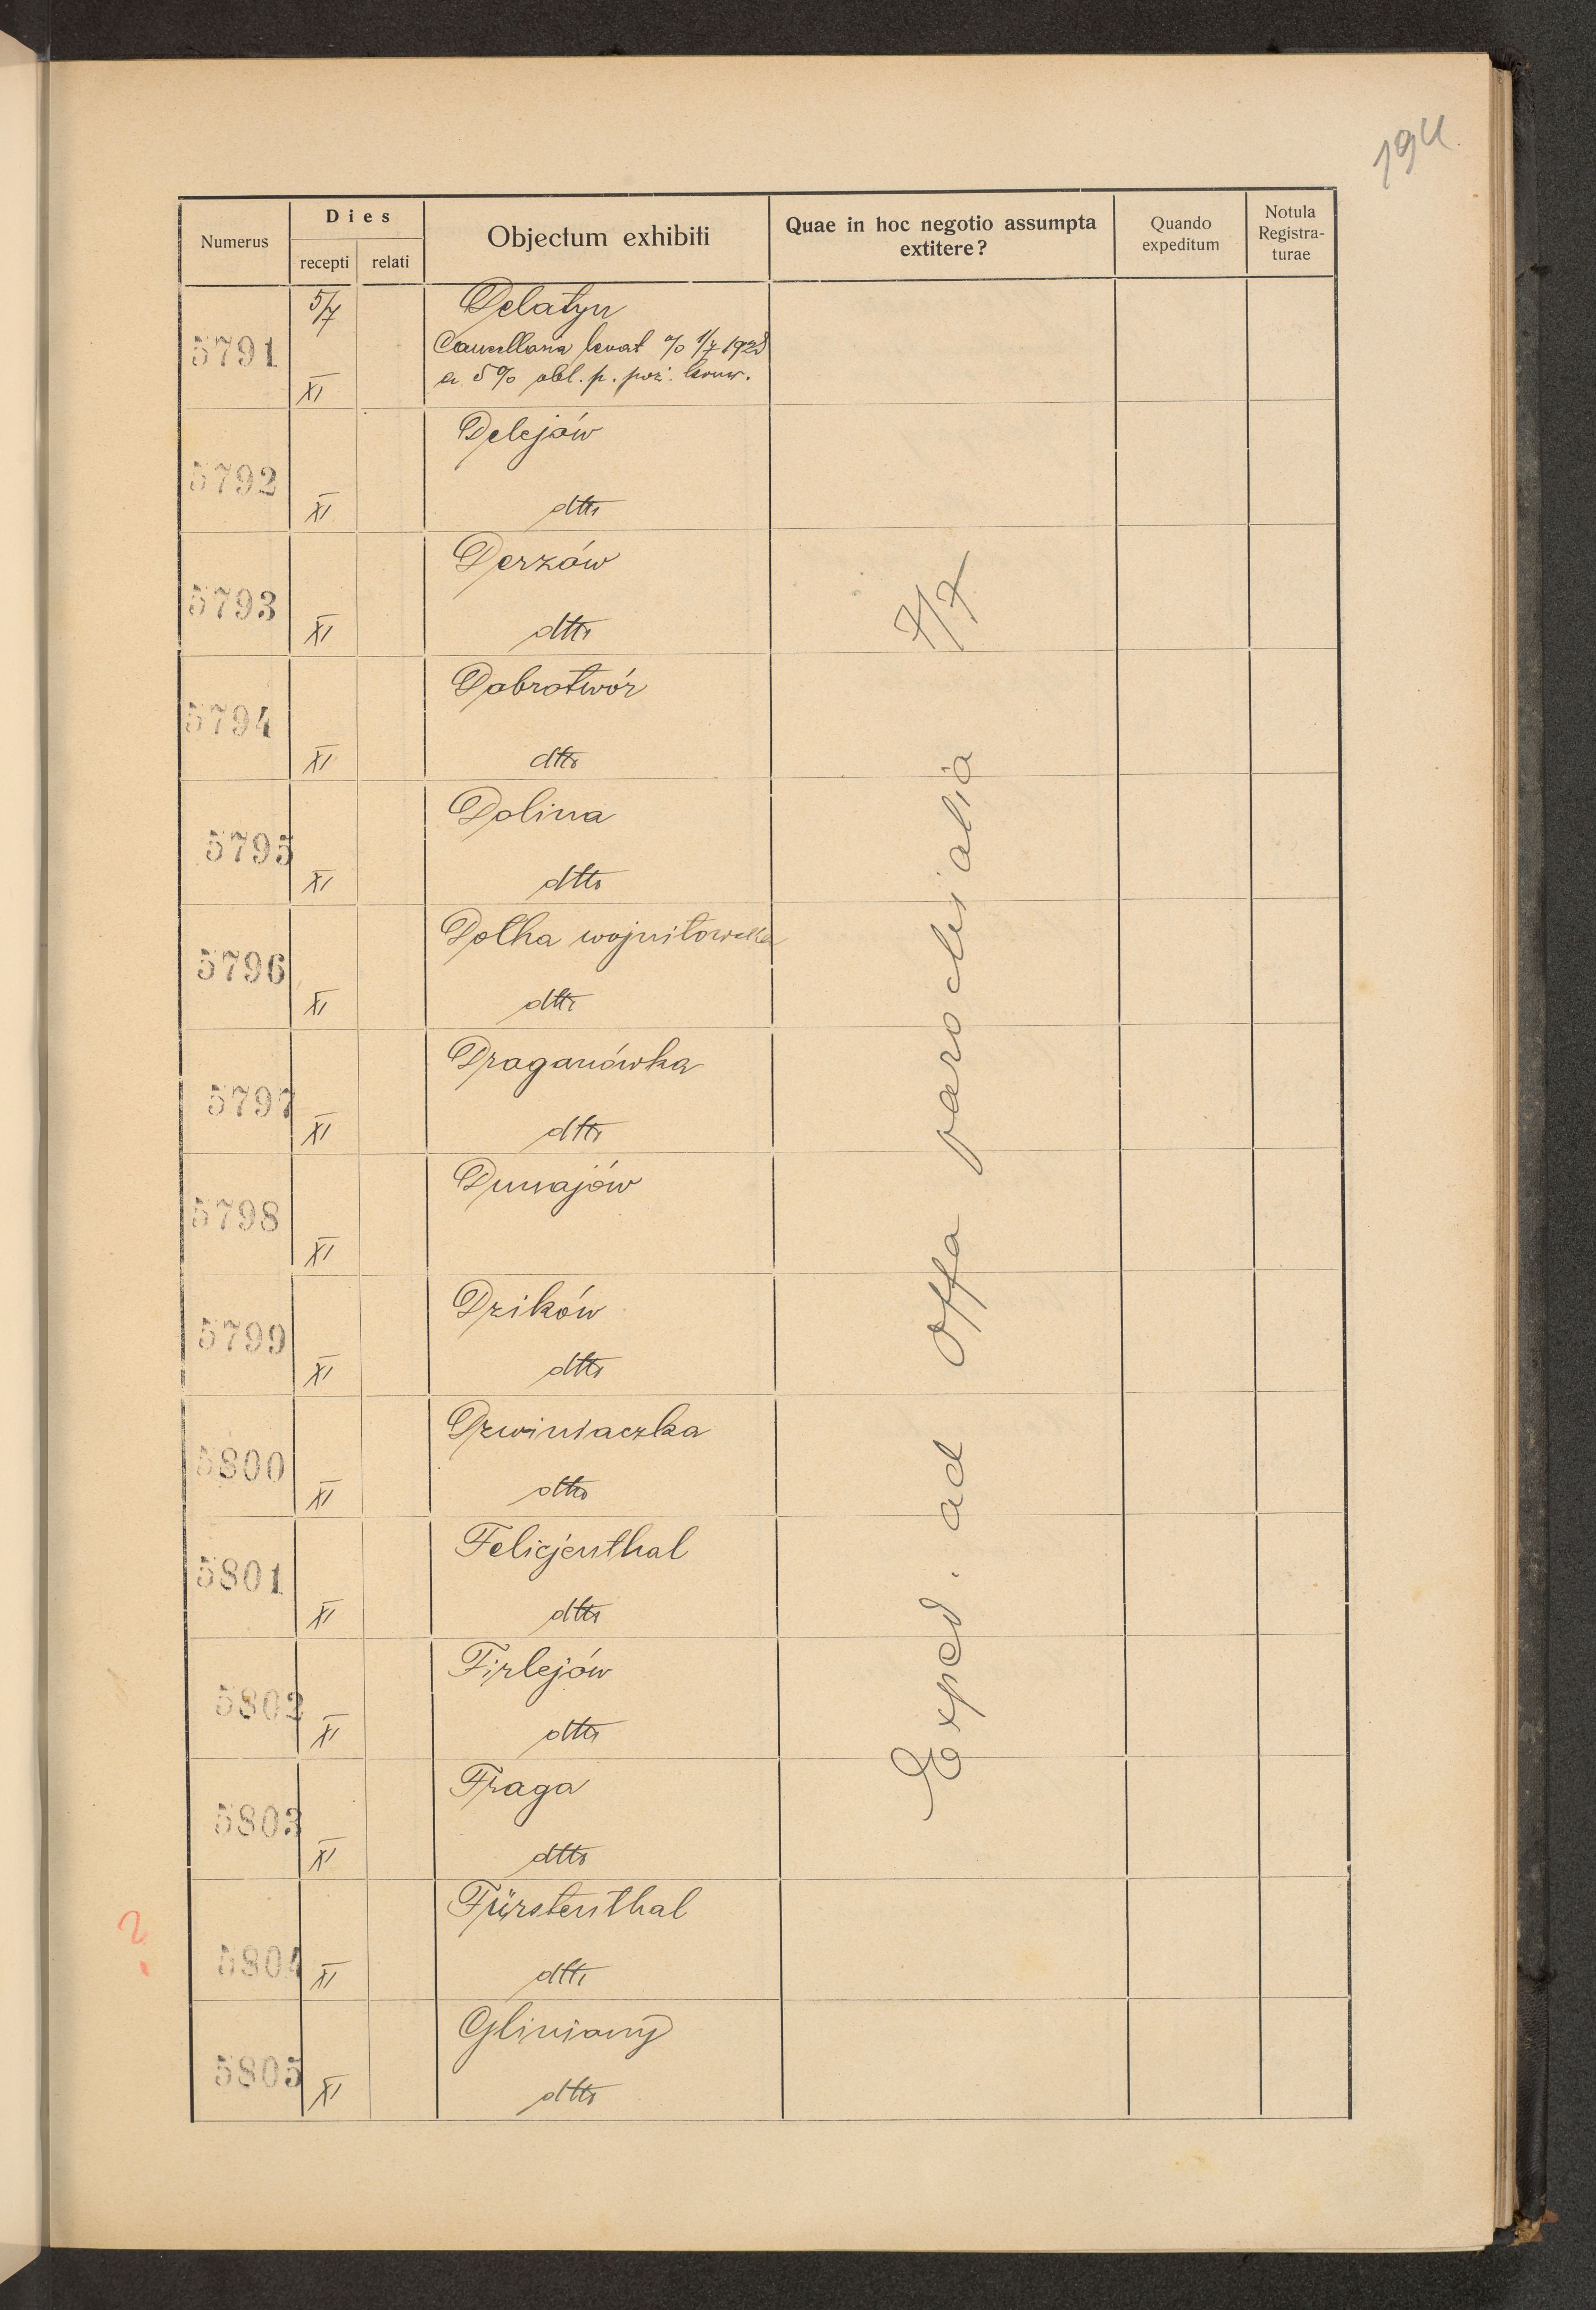 194
Numerus
Dies
recepti relati
Objectum exhibiti
Quae in hoc negotio assumpta
extitere?
Quando
expeditum
Notula
Registra-
turae
5791 5/7 XI Delatyn
Cancellaria levat % 1/7 1928
a 5% obl. p. poż. konw.
5792 XI Delejów
dtto
5793 XI Derzów
dtto
5794 XI Dobrotwór
dtto
5795 XI Dolina
dtto
5796 XI Dołha wojniłowska
dtto
5797 XI Draganówka
dtto
5798 XI Dunajów
5799 XI Dzików
dtto
5800 XI Dzwiniaczka
dtto
5801 XI Felicjenthal
dtto
5802 XI Firlejów
dtto
5803 XI Fraga
dtto
?
5804 XI Fürstenthal
dtto
5805 XI Gliniany
dtto
Exped. ad Offa parochialia
7/7